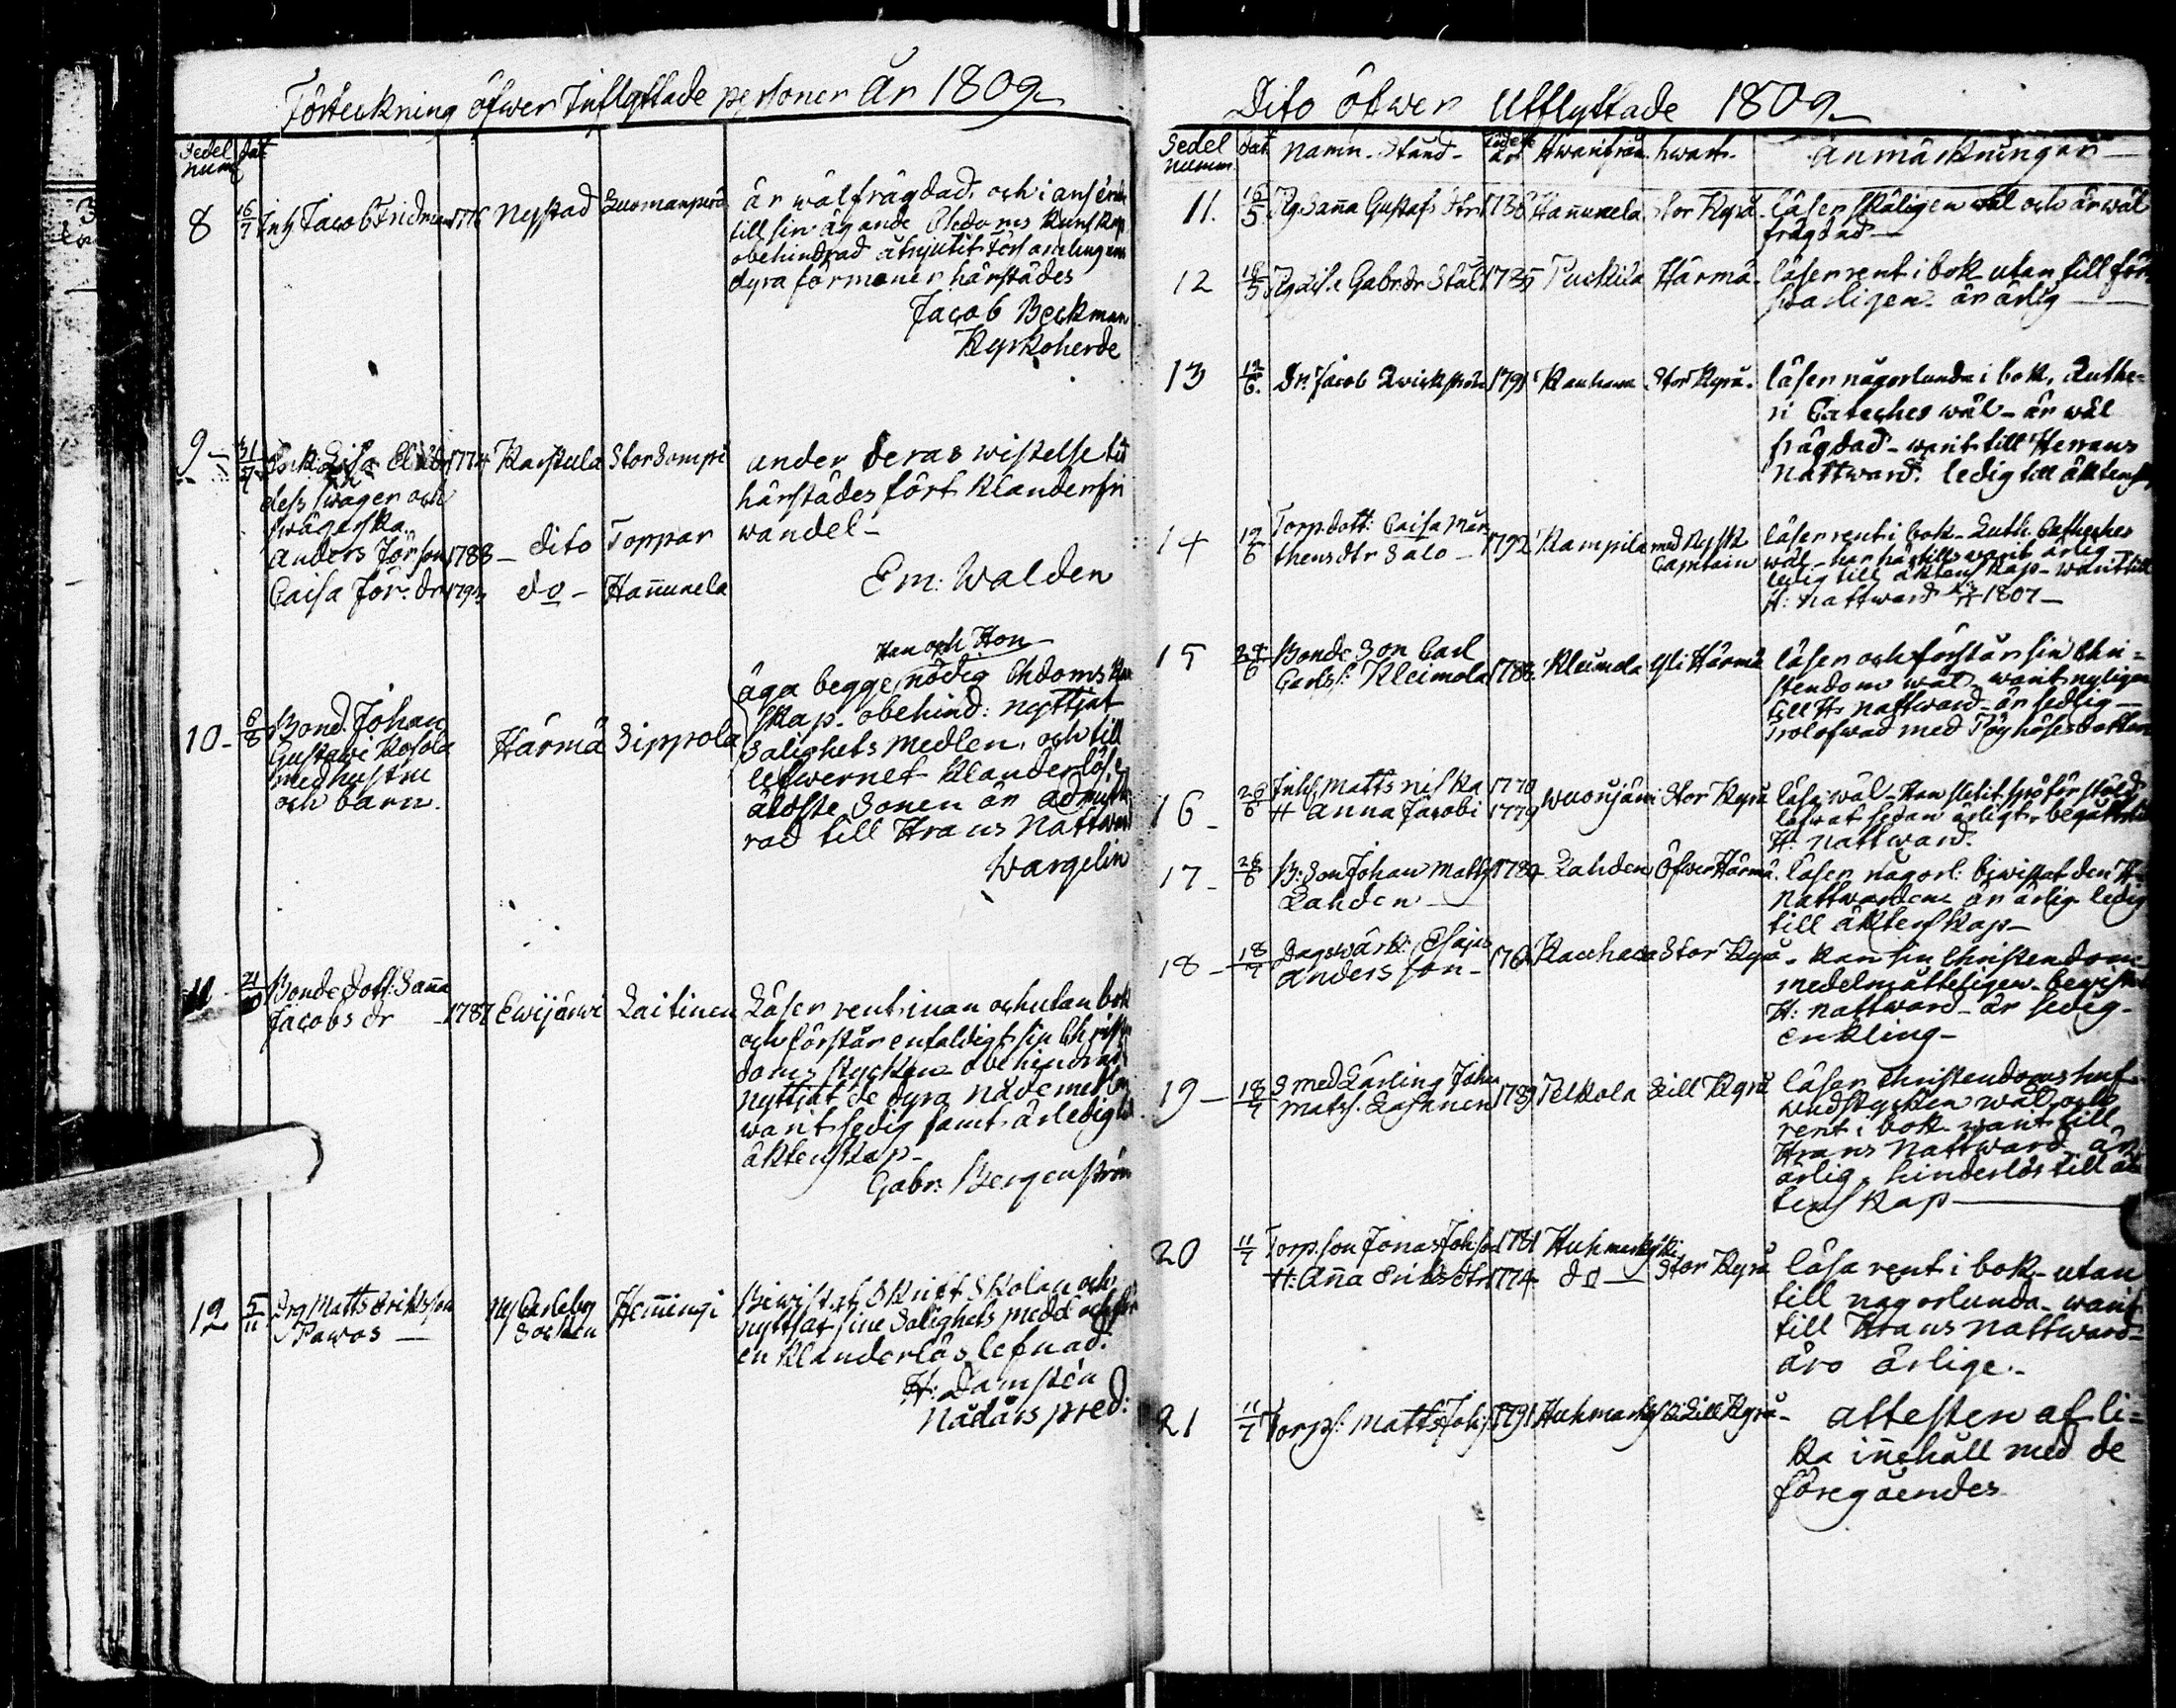 Förteckning öfwer Inflyttade personer År 1809
Sedel dat
num
8 16/7 Inh Jacob Fridman 1776 Nystad Luomanperä
är wälfrägdad, och i anseende
till sin ägande Chdoms kunskap
obehindrad åtnjutit Försonlingens
dyra förmoner härstädes
Jacob Beckman
Kyrkoherde
9 31/7 Enk Lisa 1774 Karstula Stordompi
dess swåger och
swägerska
Anders Jör son 1788 - dito Toppar
Caisa Jör. dr 1793 do - Hannunela
under deras wistelse tid
härstädes fört klanderfri
wandel -
Em: Walden
10 - 6/8 Bond. Johan
Gustawi Kosola
med hustru
och barn.
Härmä Sippola
Han och Hon
äga begge nödig Chdoms kun
skap. obehind: nyttjat
Salighets medlen, och till
lefwernet klanderlöse
äldste Sonen är admitte
rad till Hrans Nattward
Wargelin
11 21/10 Bonde dott: Sanna
Jacobs dr - 1787 Ewijärwi Laitinen
Läser rent inan och utan bok
och förstår enfaldigt sin Christen
doms stycken obehindrad
nyttjat de dyra nådemedlen
warit sedig samt är ledig till
äktenskap -
Gabr: Bergenström
12 5/11 Drg Matts Eriksson
Pawas —
Ny Carleby
Socken
Hemmingi
Biwistat Skrift Skolan och
nyttjat sine Salighets medel och fört
en klanderlös lefnad.
H: Damstén
Nådårs pred:
Dito öfwer Utflyttade 1809
Sedel dat Namn. Stånd - födelse Hwarifrån hwart. Anmärkningar
Numm. år
11. 16/5 Pig. Sanna Gustafs dtr 1788 Hannunela Stor Kyrå - läser skäligen wäl och är wäl
frägdad —
12 18/5 Pig Lisa Gabr. dr Stål 1785 Puckila Härmä - läser rent i bok utan till för
swarligen - är ärlig —
13 12/6. Dr. Jacob Qwickström 1791 Kauhawa Stor Kyrå. läser någorlunda i bok, Luthe=
ri Cateches wäl - är wäl
frägdad - warit till Herrans
Nattward. ledig till äktensk
14 12/6 Torp dott: Caisa Mår
thens dtr Salo — 1792 Kampila med Rysk
Capitain
läser rent i bok - Luth. Catheches
wäl - har härtills warit ärlig -
ledig till äktenskap - warit till
H: nattward 1807 —
15 24/6 Bonde Son Carl
Carlss: Kleimola 1788. Kleimola Yli Härmä
läser och förstår sin Chri=
stendom wäl - warit nyligen
till Hs nattward - är sedig —
Trolofwad med Töyhöfesdotter
16 - 26/6 Inhs Matts Niska 1770
H Anna Jacobi 1779 Wuosjärwi Stor Kyrå
läsa wäl - Han slitit spö för stöld
lefwat sedan ärligt, begått
H. nattward.
17 - 26/6 B: Son Johan Matts 1784 Lahden Öfwer Härmä.
Lahden —
läser någorl. biwistat den H.
Nattwarden är ärlig ledig
till äktenskap -
18 - 18/7 Dagswärk: Esaias
Andersson - 176 Kauhawa Stor Kyrå
- kan sin Christendom
medelmåtteligen - bewistat
H: nattward - är sedig -
enkling -
19 - 18/7 Smed Lärling Johan
Mats. Lasanen 1789 Pelkola Lill Kyrå
läser Christendoms huf
wudstycken wäl och
rent i bok - warit till
Hrans Nattward är
ärlig, hinderlös till äk
tenskap —
20 11/7 Torp. son Jonas Joh: son 1781 Huhmarkoski
H: Anna Eriks dtr 1774 - do — Stor Kyrå
läsa rent i bok - utan
till nagorlunda - warit
till Hrans nattward -
äro ärlige. -
21 11/7 Torps: Matts Johs. 1791 Huhmarkoski Lill Kyrå -
attesten af li=
ka innehåll med de
föregåendes